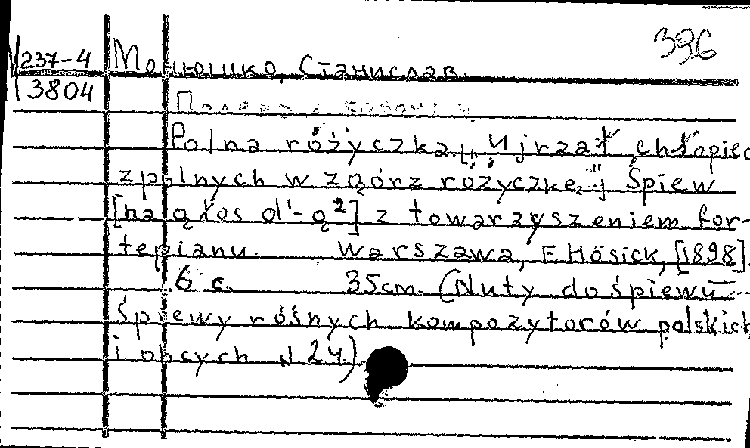 396
237-4 Монюшко, Станислав.
3804
Polna różyczka. „Ujrzał chłopiec
z polnych wzgórz różyczkę..." Śpiew
[na głos d¹-g²] z towarzyszeniem for-
tepianu. Warszawa, F. Hösick, [1898].
6 c. 35cm. (Nuty do śpiewu
śpiewy różnych kompozytorów polskich
i obcych N 24)